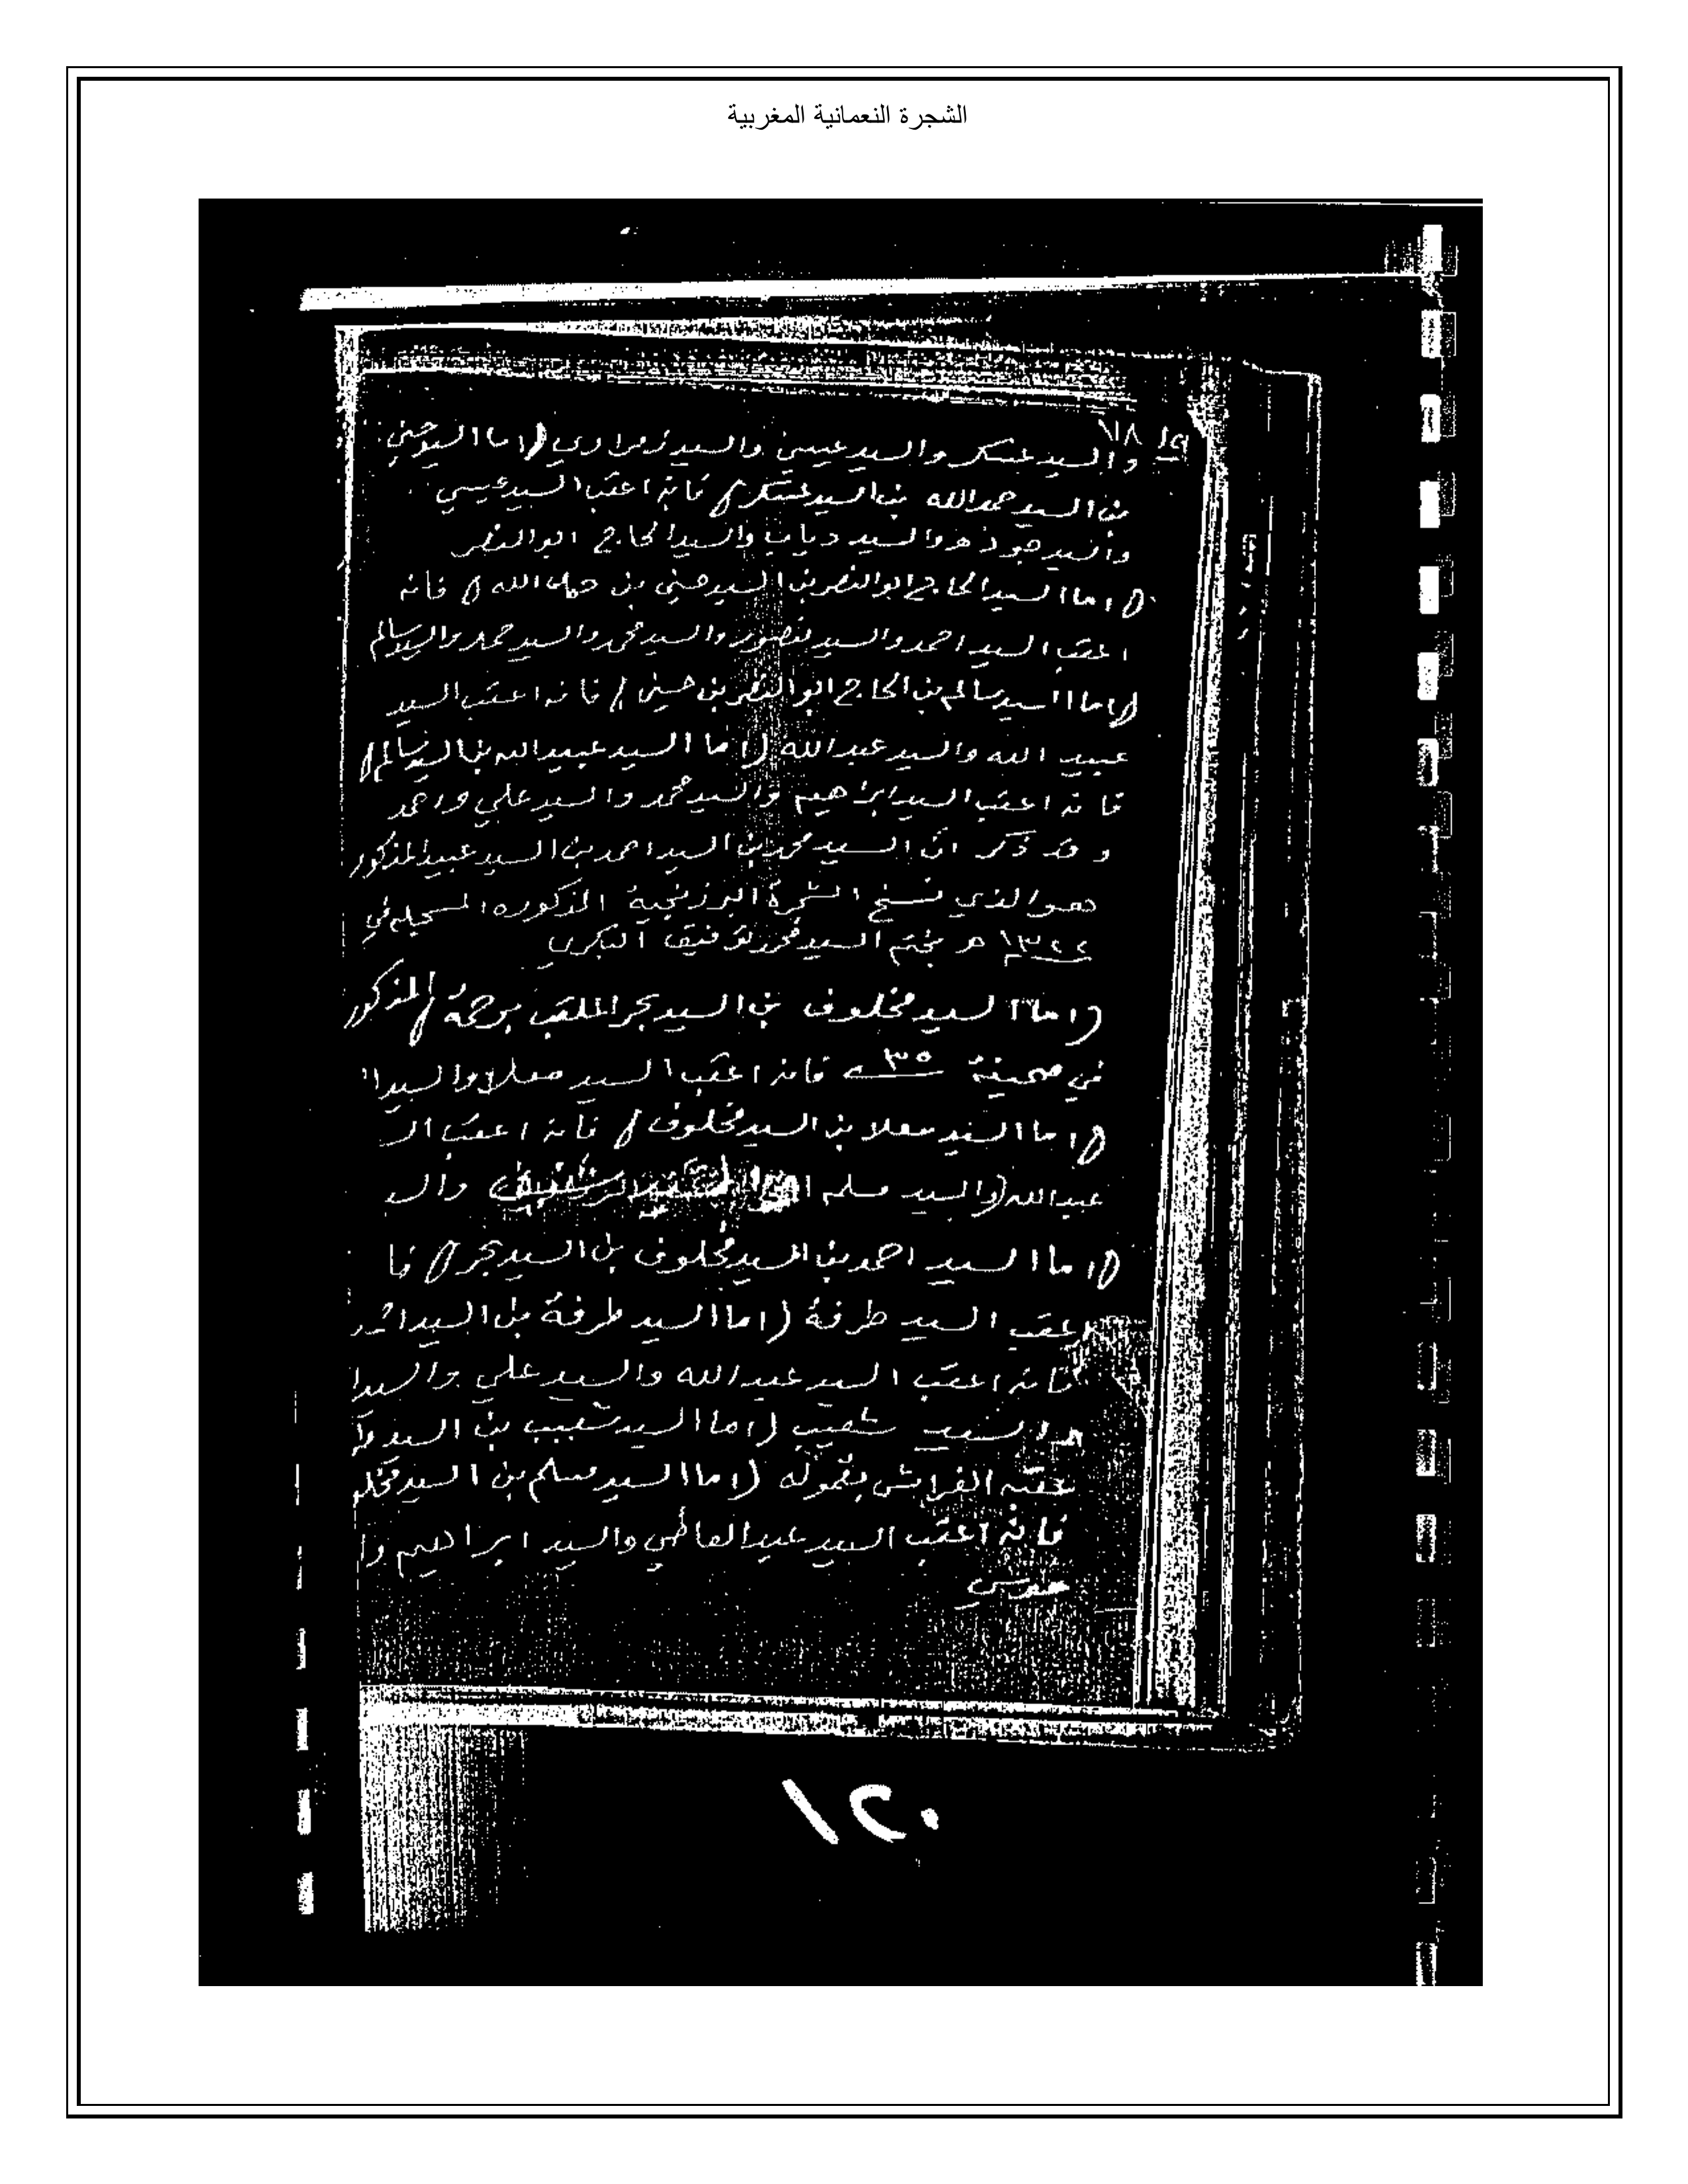 الشجرة النعمانية المغربية
١١٨
والسيد عسكر والسيد عيسى والسيد (اما السيد حسني
بن السيد حمدالله بن السيد عسكر) فانه اعقب السيد عيسي
والسيد جوذه والسيد دياب والسيد الحاج ابوالنصر
(اما السيد الحاج ابوالنصر بن السيد حسني بن حمد الله) فانه
اعقب السيد احمد والسيد منصور والسيد محمد والسيد حمد والسيد سالم
(اما السيد سالم بن الحاج ابوالنصر بن حسني) فانه اعقب السيد
عبيد الله والسيد عبدالله (اما السيد عبيدالله بن السيد سالم)
فانه اعقب السيد ابراهيم والسيد محمد والسيد علي واحمد
وقد ذكر ان السيد محمد بن السيد احمد بن السيد عبيد المذكور
هو الذي نسخ الشجرة البرزنجية المذكوره المسجله في
١٣٢٢ هـ بختم السيد محمد توفيق البكري
(اما السيد مخلوف بن السيد بحر الملقب برحمة) المذكور
في صحيفة ٣٥ فانه اعقب السيد معلا والسيد ا
(اما السيد معلا بن السيد مخلوف) فانه اعقب الـ
عبدالله (والسيد مسلم والسـ
(اما السيد احمد بن السيد مخلوف بن السيد بحر) فا
اعقب السيد طرفة (اما السيد طرفة بن السيد احمد
فانه اعقب السيد عبدالله والسيد علي والسيد ا
والسيد شعيب (اما السيد شعيب بن السيد
عقبه الفرانش بقموله (اما السيد مسلم بن السيد مخلو
فانه اعقب السيد عبدالعاطي والسيد ابراهيم وا
١٢٠